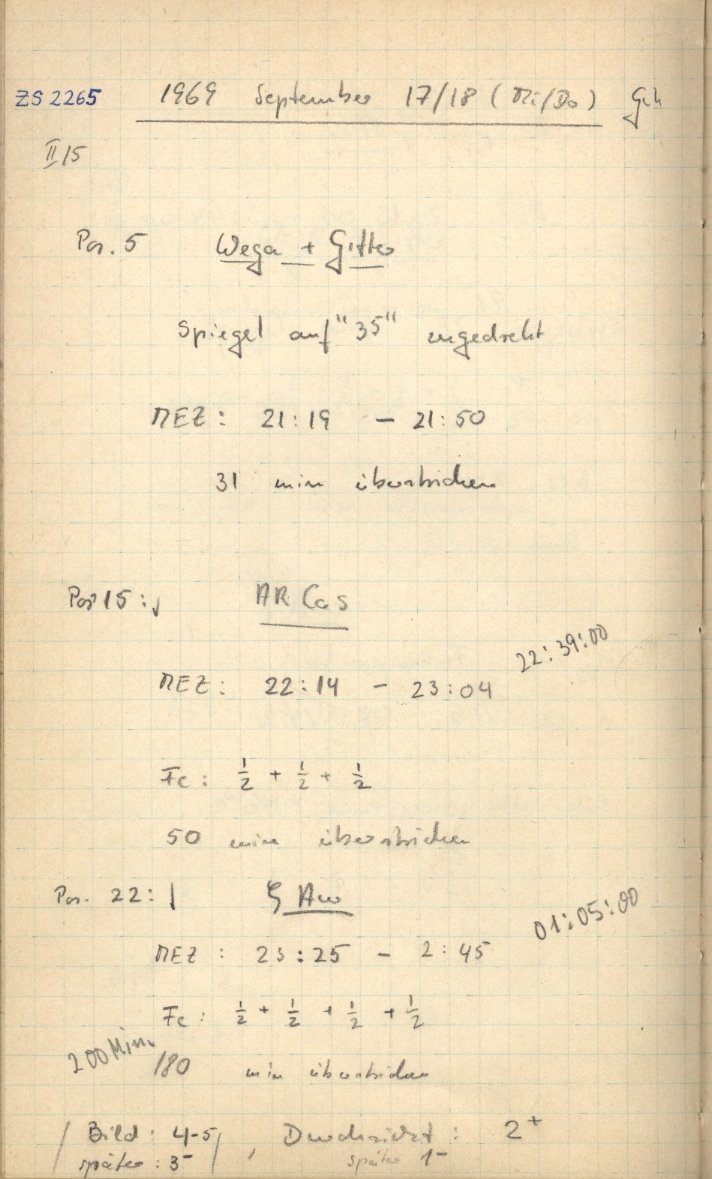 ZS 2265 1969 September 17/18 (Mi/Do) Geh
II/5
Pos. 5 Wega + Gitter
Spiegel auf "35" eingedreht
MEZ: 21:19 - 21:50
31 min überstrichen
Pos 15: AR Cas
22:39:00
MEZ: 22:14 - 23:04
Fe: 1/2 + 1/2 + 1/2
50 min überstrichen
Pos. 22: ζ Aur
01:05:00
MEZ: 23:25 - 2:45
Fe: 1/2 + 1/2 + 1/2 + 1/2
200 Min. 180 min überstrichen
Bild: 4-5, Durchsicht: 2+
später: 3- später 1-